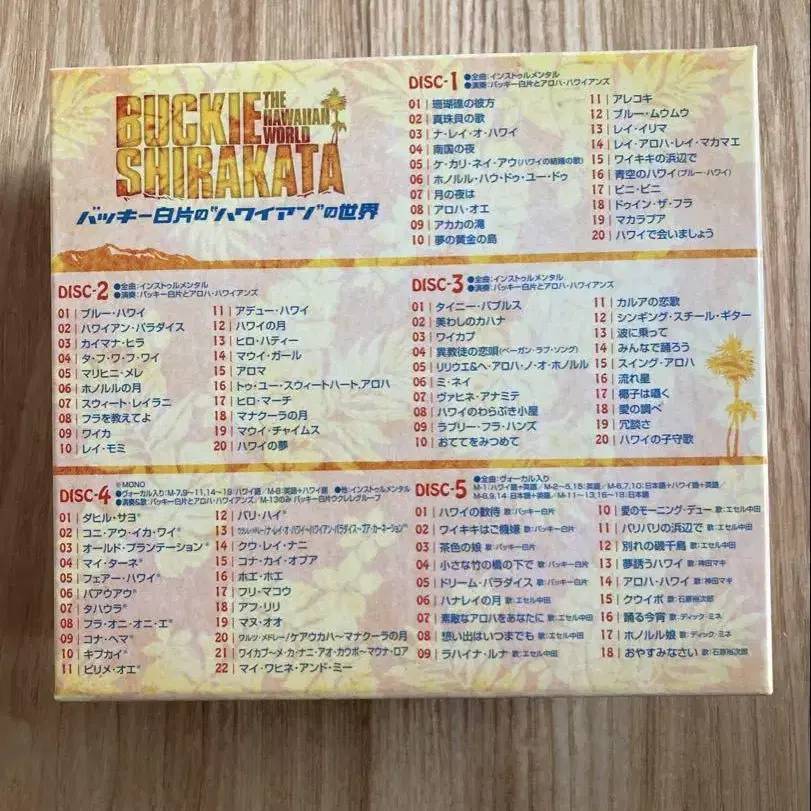 BUCKIE
THE HAWAIIAN WORLD
SHIRAKATA
バッキー白片の"ハワイアン"の世界
DISC-1 ●全曲:インストゥルメンタル
●演奏:バッキー白片とアロハ・ハワイアンズ
01 珊瑚礁の彼方
02 真珠貝の歌
03 ナ・レイ・オ・ハワイ
04 南国の夜
05 ケ・カリ・ネイ・アウ(ハワイの結婚の歌)
06 ホノルル・ハウ・ドゥ・ユー・ドゥ
07 月の夜は
08 アロハ・オエ
09 アカカの滝
10 夢の黄金の島
11 アレコキ
12 ブルー・ムウムウ
13 レイ・イリマ
14 レイ・アロハ・レイ・マカマエ
15 ワイキキの浜辺で
16 青空のハワイ(ブルー・ハワイ)
17 ピニ・ピニ
18 ドゥイン・ザ・フラ
19 マカラプア
20 ハワイで会いましょう
DISC-2 ●全曲:インストゥルメンタル
●演奏:バッキー白片とアロハ・ハワイアンズ
01 ブルー・ハワイ
02 ハワイアン・パラダイス
03 カイマナ・ヒラ
04 タ・フ・ワ・フ・ワイ
05 マリヒニ・メレ
06 ホノルルの月
07 スウィート・レイラニ
08 フラを教えてよ
09 ワイカ
10 レイ・モミ
11 アデュー・ハワイ
12 ハワイの月
13 ヒロ・ハティー
14 マウイ・ガール
15 アロマ
16 トゥ・ユー・スウィートハート,アロハ
17 ヒロ・マーチ
18 マナクーラの月
19 マウイ・チャイムス
20 ハワイの夢
DISC-3 ●全曲:インストゥルメンタル
●演奏:バッキー白片とアロハ・ハワイアンズ
01 タイニー・バブルス
02 美わしのカハナ
03 ワイカプ
04 異教徒の恋唄(ペーガン・ラブ・ソング)
05 リリウエ&ヘ・アロハ・ノ・オ・ホノルル
06 ミ・ネイ
07 ヴァヒネ・アナミテ
08 ハワイのわらぶき小屋
09 ラブリー・フラ・ハンズ
10 おててをみつめて
11 カルアの恋歌
12 シンギング・スチール・ギター
13 波に乗って
14 みんなで踊ろう
15 スイング・アロハ
16 流れ星
17 椰子は囁く
18 愛の調べ
19 冗談さ
20 ハワイの子守歌
DISC-4 ※MONO
●ヴォーカル入り:M-7,9~11,14~19:ハワイ語/M-8:英語+ハワイ語 ●他:インストゥルメンタル
●演奏&歌:バッキー白片とアロハ・ハワイアンズ/M-13のみ バッキー白片ウクレレグループ
01 ダヒル・サヨ※
02 コニ・アウ・イカ・ワイ※
03 オールド・プランテーション※
04 マイ・ターネ※
05 フェアー・ハワイ※
06 パアウアウ※
07 タハウラ※
08 フラ・オニ・オニ・エ※
09 コナ・ヘマ※
10 キプカイ※
11 ピリメ・オエ※
12 バリ・ハイ※
14 クウ・レイ・ナニ
15 コナ・カイ・オプア
16 ホエ・ホエ
17 フリ・マコウ
18 アフ・リリ
19 マヌ・オオ
20 ワルツ・メドレー/ケアウカハ~マナクーラの月
21 ワイカプ~メ・カ・ナニ・アオ・カウポ~マウナ・ロア
22 マイ・ワヒネ・アンド・ミー
DISC-5 ●全曲:ヴォーカル入り
M-1:ハワイ語+英語/M-2~5,15:英語/M-6,7,10:日本語+ハワイ語+英語/
M-8,9,14:日本語+英語/M-11~13,16~18:日本語
01 ハワイの歓待 歌:バッキー白片
02 ワイキキはご機嫌 歌:バッキー白片
03 茶色の娘 歌:バッキー白片
04 小さな竹の橋の下で 歌:バッキー白片
05 ドリーム・パラダイス 歌:バッキー白片
06 ハナレイの月 歌:エセル中田
07 素敵なアロハをあなたに 歌:エセル中田
08 想い出はいつまでも 歌:エセル中田
09 ラハイナ・ルナ 歌:エセル中田
10 愛のモーニング・デュー 歌:エセル中田
11 パリパリの浜辺で 歌:エセル中田
12 別れの磯千鳥 歌:エセル中田
13 夢誘うハワイ 歌:神田マキ
14 アロハ・ハワイ 歌:神田マキ
15 クウイポ 歌:石原裕次郎
16 踊る今宵 歌:ディック・ミネ
17 ホノルル娘 歌:ディック・ミネ
18 おやすみなさい 歌:石原裕次郎